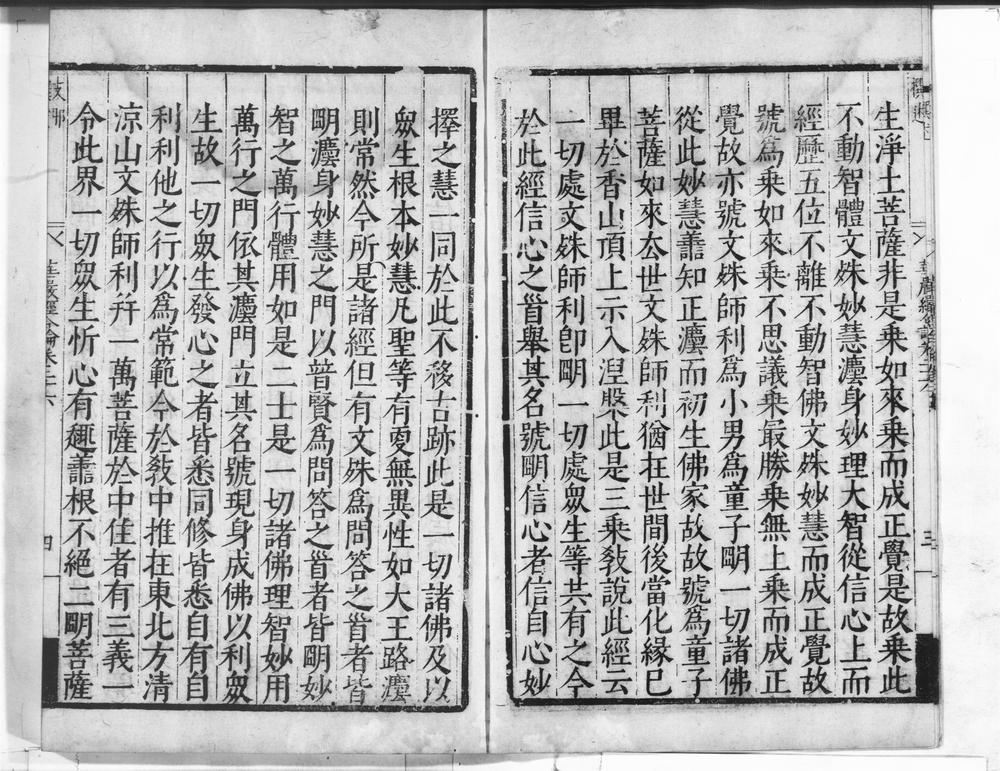 生淨土菩薩非是乘如來乘而成正覺是故乘此
不動智體文殊妙慧灋身妙理大智從信心上而
經歷五位不離不動智佛文殊妙慧而成正覺故
號爲乘如來乘不思議乘最勝乘無上乘而成正
覺故亦號文殊師利爲小男爲童子朙一切諸佛
從此妙慧善知正灋而初生佛家故故號爲童子
菩薩如來厺世文殊師利猶在世間後當化緣巳
畢於香山頂上示入湼槃此是三乘敎說此經云
一切處文殊師利卽朙一切處眾生等共有之今
於此經信心之首舉其名號朙信心者信自心妙
三
擇之慧一同於此不移古跡此是一切諸佛及以
眾生根本妙慧凡聖等有更無異性如大王路灋
則常然今所是諸經但有文殊爲問答之首者皆
朙灋身妙慧之門以普賢爲問答之首者皆朙妙
智之萬行體用如是二士是一切諸佛理智妙用
萬行之門依其灋門立其名號現身成佛以利眾
生故一切眾生發心之者皆悉同修皆悉自有自
利利他之行以爲常範今於敎中推在東北方清
涼山文殊師利幷一萬菩薩於中住者有三義一
令此界一切眾生忻心有趣善根不絕二朙菩薩
華嚴經合論卷三十六
四